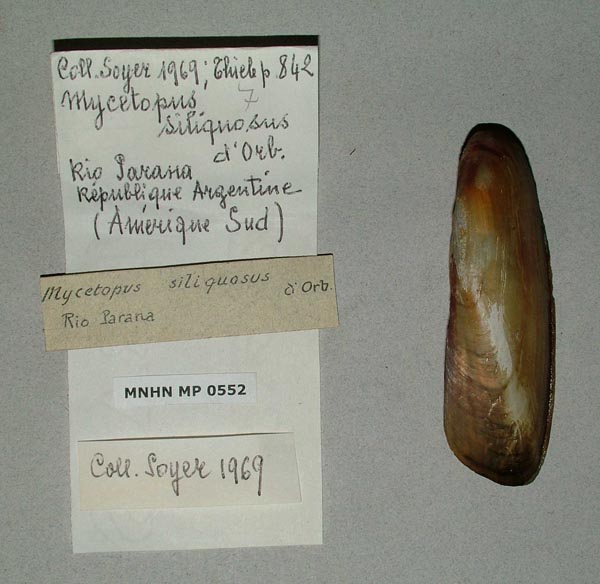 Coll. Soyer 1969; Thiele p. 842
Mycetopus 7
siliquosus
d'Orb.
Rio Parana
République Argentine
(Amérique Sud)
Mycetopus siliquosus d'Orb.
Rio Parana
MNHN MP 0552
Coll. Soyer 1969